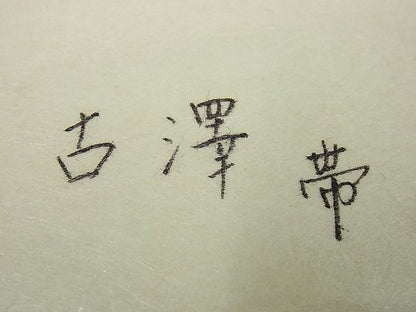 古澤 帯